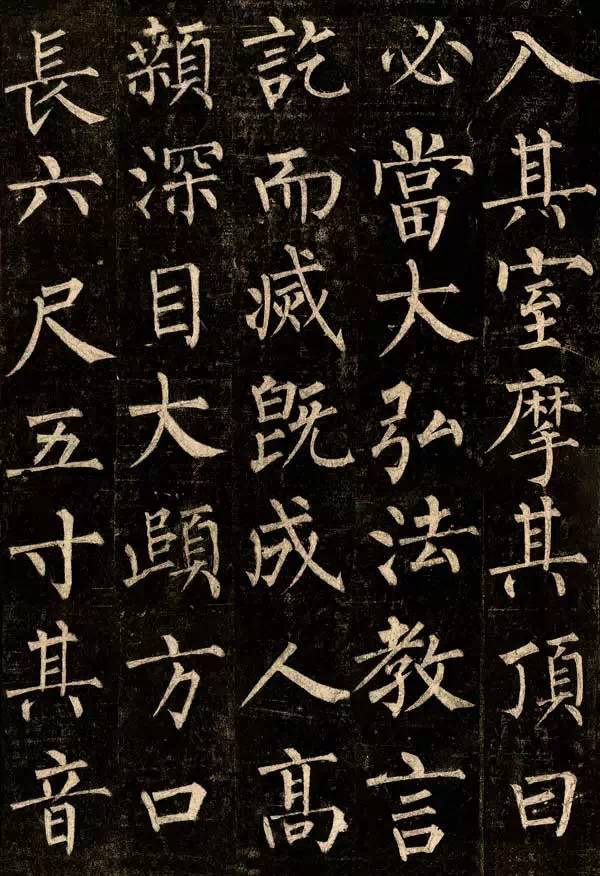 入其室摩其頂曰
必當大弘法教言
訖而滅既成人高
顙深目大頤方口
長六尺五寸其音